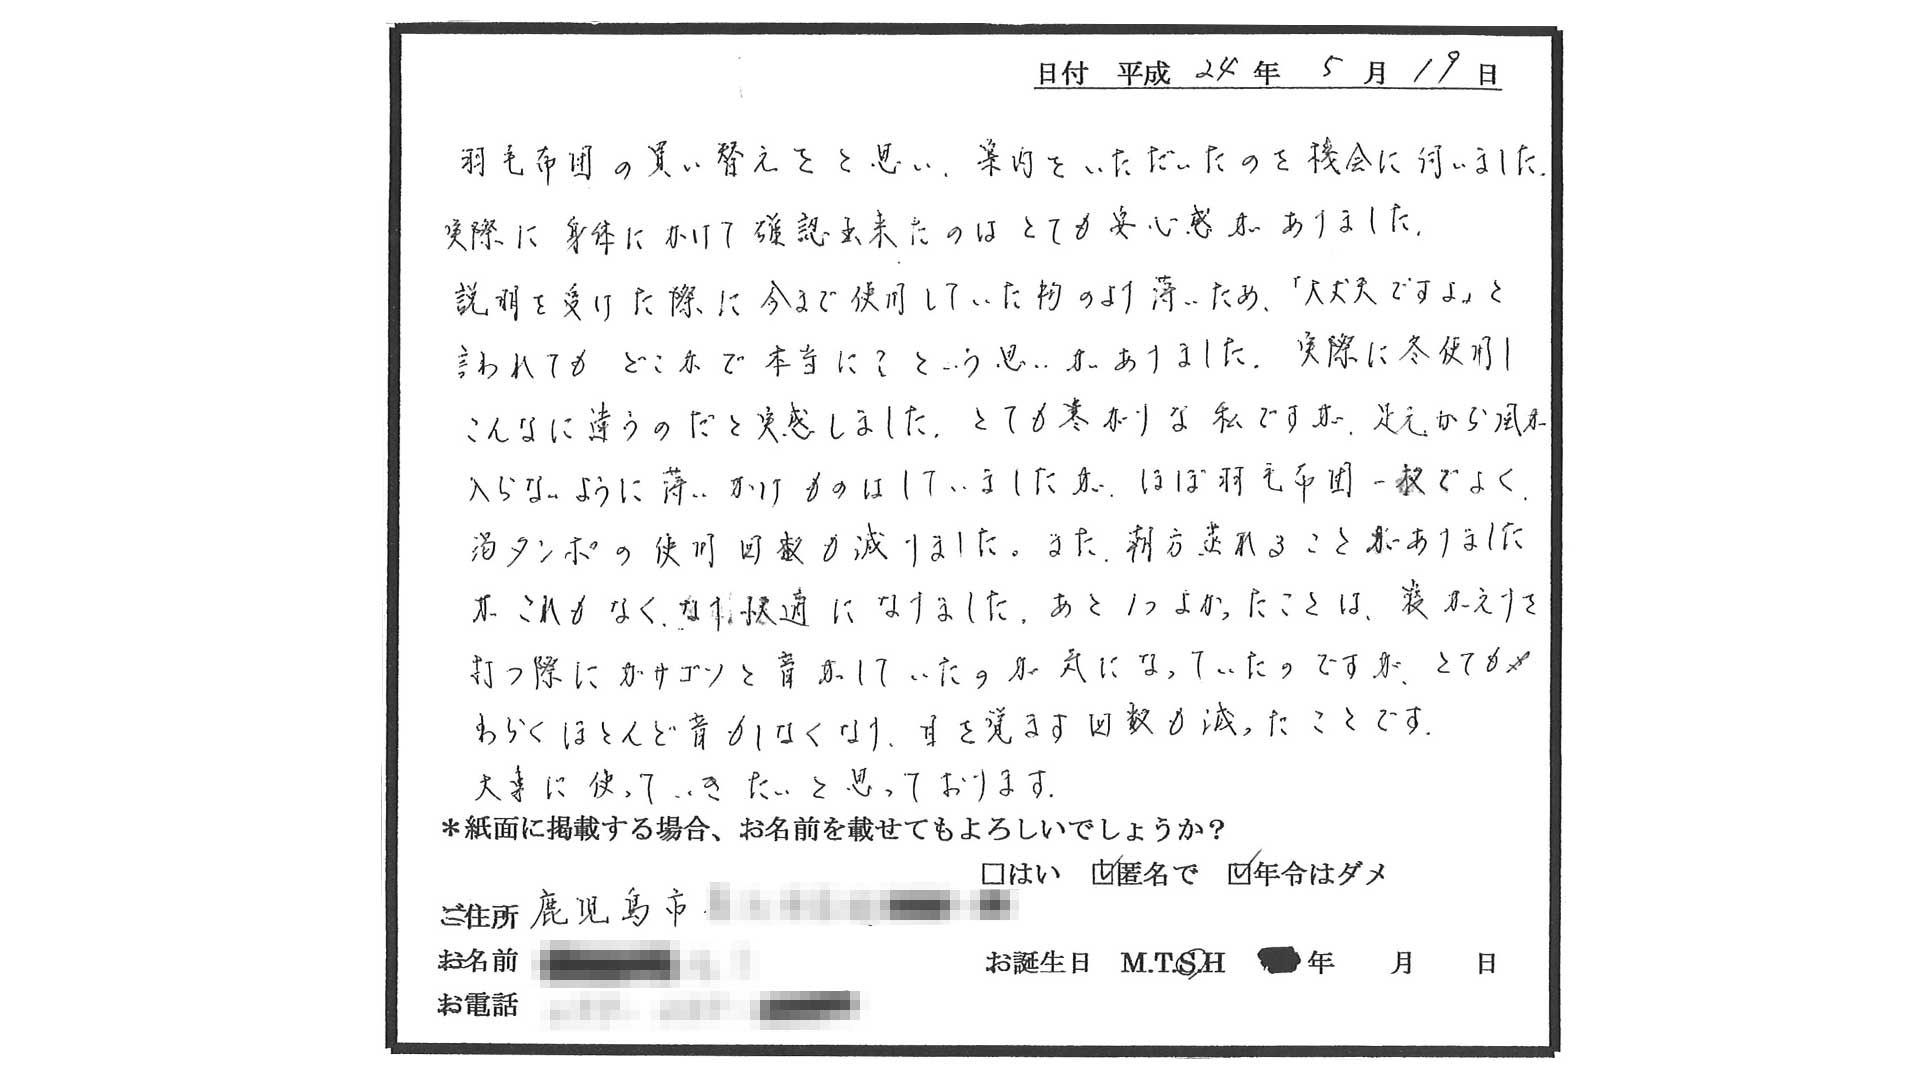 日付 平成 24 年 5 月 19 日
羽毛布団の買い替えをと思い、案内をいただいたのを機会に伺いました。
実際に身体にかけて確認出来たのはとても安心感がありました。
説明を受けた際に今まで使用していた物のより薄いため、「大丈夫ですよ」と
言われてもどこかで本当に?という思いがありました。実際に冬使用し
こんなに違うのだと実感しました。とても寒がりな私ですが、足元から風が
入らないように薄いかけものはしていましたが、ほぼ羽毛布団一枚でよく、
湯タンポの使用回数も減りました。また、朝方蒸れることがありました
がこれもなくなり、快適になりました。あと1つよかったことは、寝がえりを
打つ際にガサゴソと音がしていたのが気になっていたのですが、とてもや
わらくほとんど音がしなくなり、目を覚ます回数も減ったことです。
大事に使っていきたいと思っております。
＊紙面に掲載する場合、お名前を載せてもよろしいでしょうか？
□はい ☑匿名で ☑年令はダメ
ご住所 鹿児島市
お名前
お誕生日 M.T.S.H 年 月 日
お電話